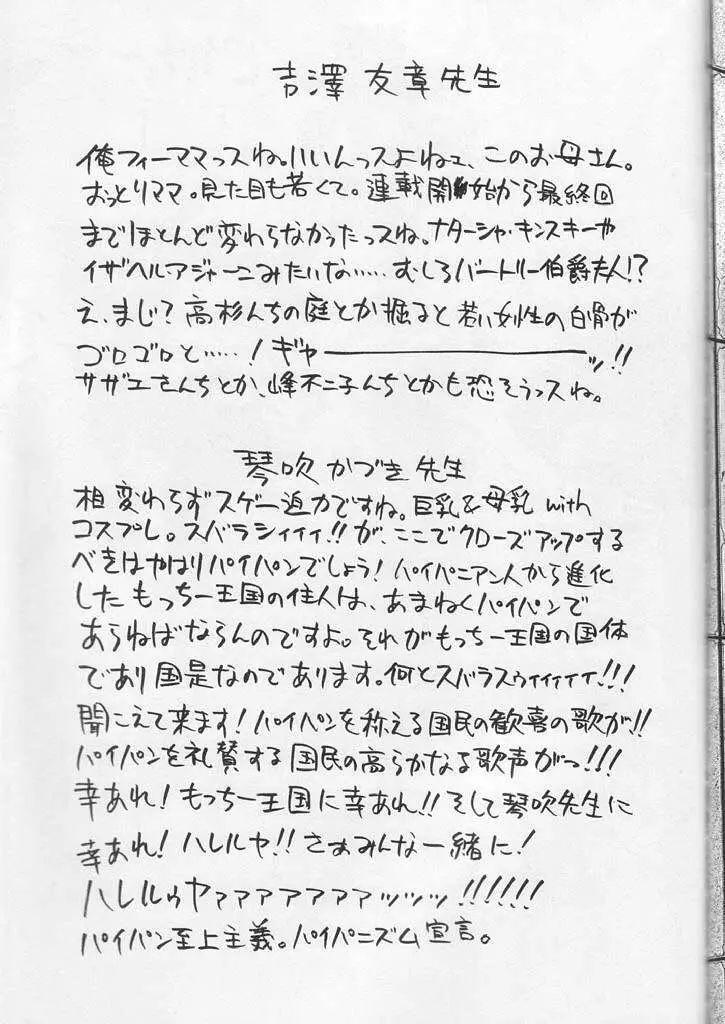 吉澤友章先生
俺フィーママっスね。いいんっスよねェ、このお母さん。
おっとりママ。見た目も若くて。連載開始から最終回
までほとんど変わらなかったっスね。ナターシャ・キンスキーや
イザベル・アジャーニみたいな……むしろバートリー伯爵夫人!?
え、まじ?高杉んちの庭とか掘ると若い女性の白骨が
ゴロゴロと……!ギャーーーーーーッ!!
サザエさんちとか、峰不二子んちとかも恐そうっスね。
琴吹かづき先生
相変わらずスゲー迫力ですね。巨乳&母乳with
コスプレ。スバラシィィィ!!が、ここでクローズアップする
べきはやはりパイパンでしょう!パイパニアン人から進化
したもっちー王国の住人は、あまねくパイパンで
あらねばならんのですよ。それがもっちー王国の国体
であり国是なのであります。何とスバラスゥィィィィィ!!!
聞こえて来ます!パイパンを称える国民の歓喜の歌が!!
パイパンを礼賛する国民の高らかなる歌声がっ!!!
幸あれ!もっちー王国に幸あれ!!そして琴吹先生に
幸あれ!ハレルヤ!!さぁみんな一緒に!
ハレルゥヤァァァァァァァッッッ!!!!!!
パイパン至上主義。パイパニズム宣言。